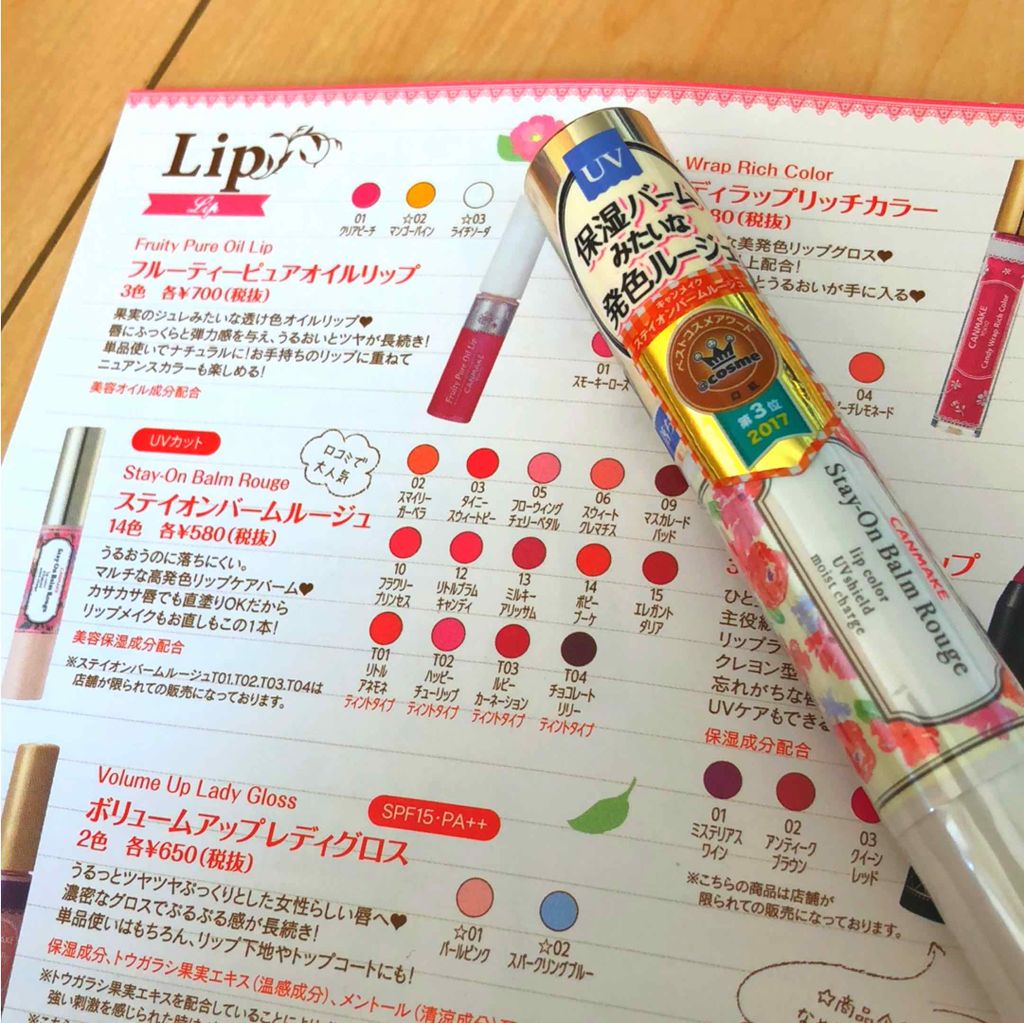 Lip
Lip
01
クリアピーチ
☆02
マンゴーパイン
☆03
ライチソーダ
Fruity Pure Oil Lip
フルーティーピュアオイルリップ
3色 各¥700(税抜)
果実のジュレみたいな透け色オイルリップ♥
唇にふっくらと弾力感を与え、うるおいとツヤが長続き!
単品使いでナチュラルに!お手持ちのリップに重ねて
ニュアンスカラーも楽しめる!
美容オイル成分配合
Fruity Pure Oil Lip
CANMAKE
Wrap Rich Color
ディラップリッチカラー
80(税抜)
な美発色リップグロス♥
上配合!
とうるおいが手に入る♥
01
スモーキーローズ
04
ーチレモネード
CANMAKE
Candy Wrap Rich Color
UVカット
Stay-On Balm Rouge
ステイオンバームルージュ
14色 各¥580(税抜)
うるおうのに落ちにくい。
マルチな高発色リップケアバーム♥
カサカサ唇でも直塗りOKだから
リップメイクもお直しもこの1本!
美容保湿成分配合
※ステイオンバームルージュT01.T02.T03.T04は
店舗が限られての販売になっております。
口コミで
大人気
02
スマイリー
ガーベラ
03
タイニー
スウィートピー
05
フローウィング
チェリーペタル
06
スウィート
クレマチス
09
マスカレード
バッド
10
フラワリー
プリンセス
12
リトルプラム
キャンディ
13
ミルキー
アリッサム
14
ポピー
ブーケ
15
エレガント
ダリア
T01
リトル
アネモネ
ティントタイプ
T02
ハッピー
チューリップ
ティントタイプ
T03
ルビー
カーネーション
ティントタイプ
T04
チョコレート
リリー
ティントタイプ
Stay-On Balm Rouge
Volume Up Lady Gloss
ボリュームアップレディグロス
2色 各¥650(税抜)
SPF15・PA++
うるっとツヤツヤぷっくりとした女性らしい唇へ♥
濃密なグロスでぷるぷる感が長続き!
単品使いはもちろん、リップ下地やトップコートにも!
保湿成分、トウガラシ果実エキス(温感成分)、メントール(清涼成分)
※トウガラシ果実エキスを配合していることにより
強い刺激を感じられた時は
☆01
パールピンク
☆02
スパークリングブルー
ップ
ひと
主役級
リップラ
クレヨン型
忘れがちな唇
UVケアもできる
保湿成分配合
01
ミステリアス
ワイン
02
アンティーク
ブラウン
03
クイーン
レッド
※こちらの商品は店舗が
限られての販売になっております。
☆商品
UV
保湿バーム
みたいな
発色ルージュ
キャンメイク
ステイオンバームルージュ
ベストコスメアワード
@cosme
口紅
第3位
2017
CANMAKE
Stay-On Balm Rouge
lip color
UV shield
moist charge